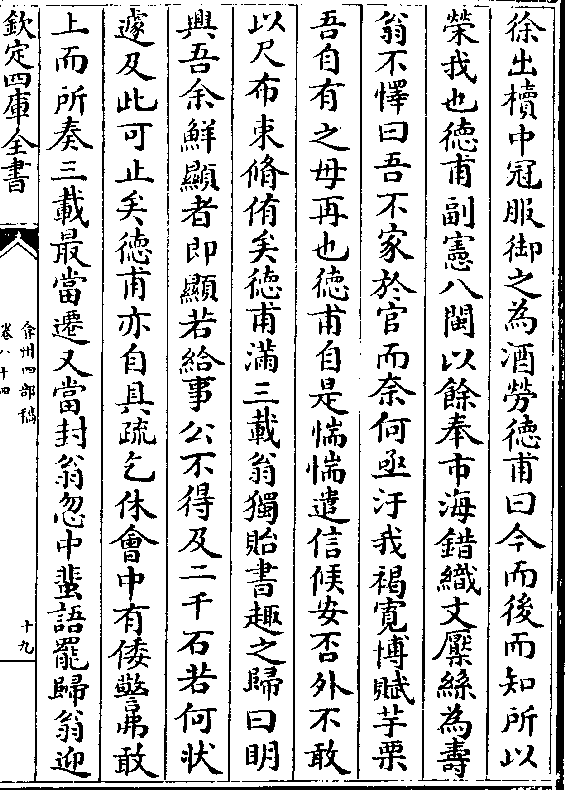 徐出櫝中冠服御之為酒勞徳甫曰今而後而知所以
榮我也徳甫副憲八閩以餘奉市海錯織文檿絲為壽
翁不懌曰吾不家於官而奈何亟汙我褐寛博賦芋栗
吾自有之毋再也徳甫自是惴惴遣信候安否外不敢
以尺布束脩侑矣徳甫滿三載翁獨貽書趣之歸曰明
興吾余鮮顯者即顯若給事公不得及二千石若何狀
遽及此可止矣徳甫亦自具疏乞休會中有倭警弗敢
上而所奏三載最當遷又當封翁忽中蜚語罷歸翁迎
欽定四庫全書
弇州四部稿
卷八十四
十九